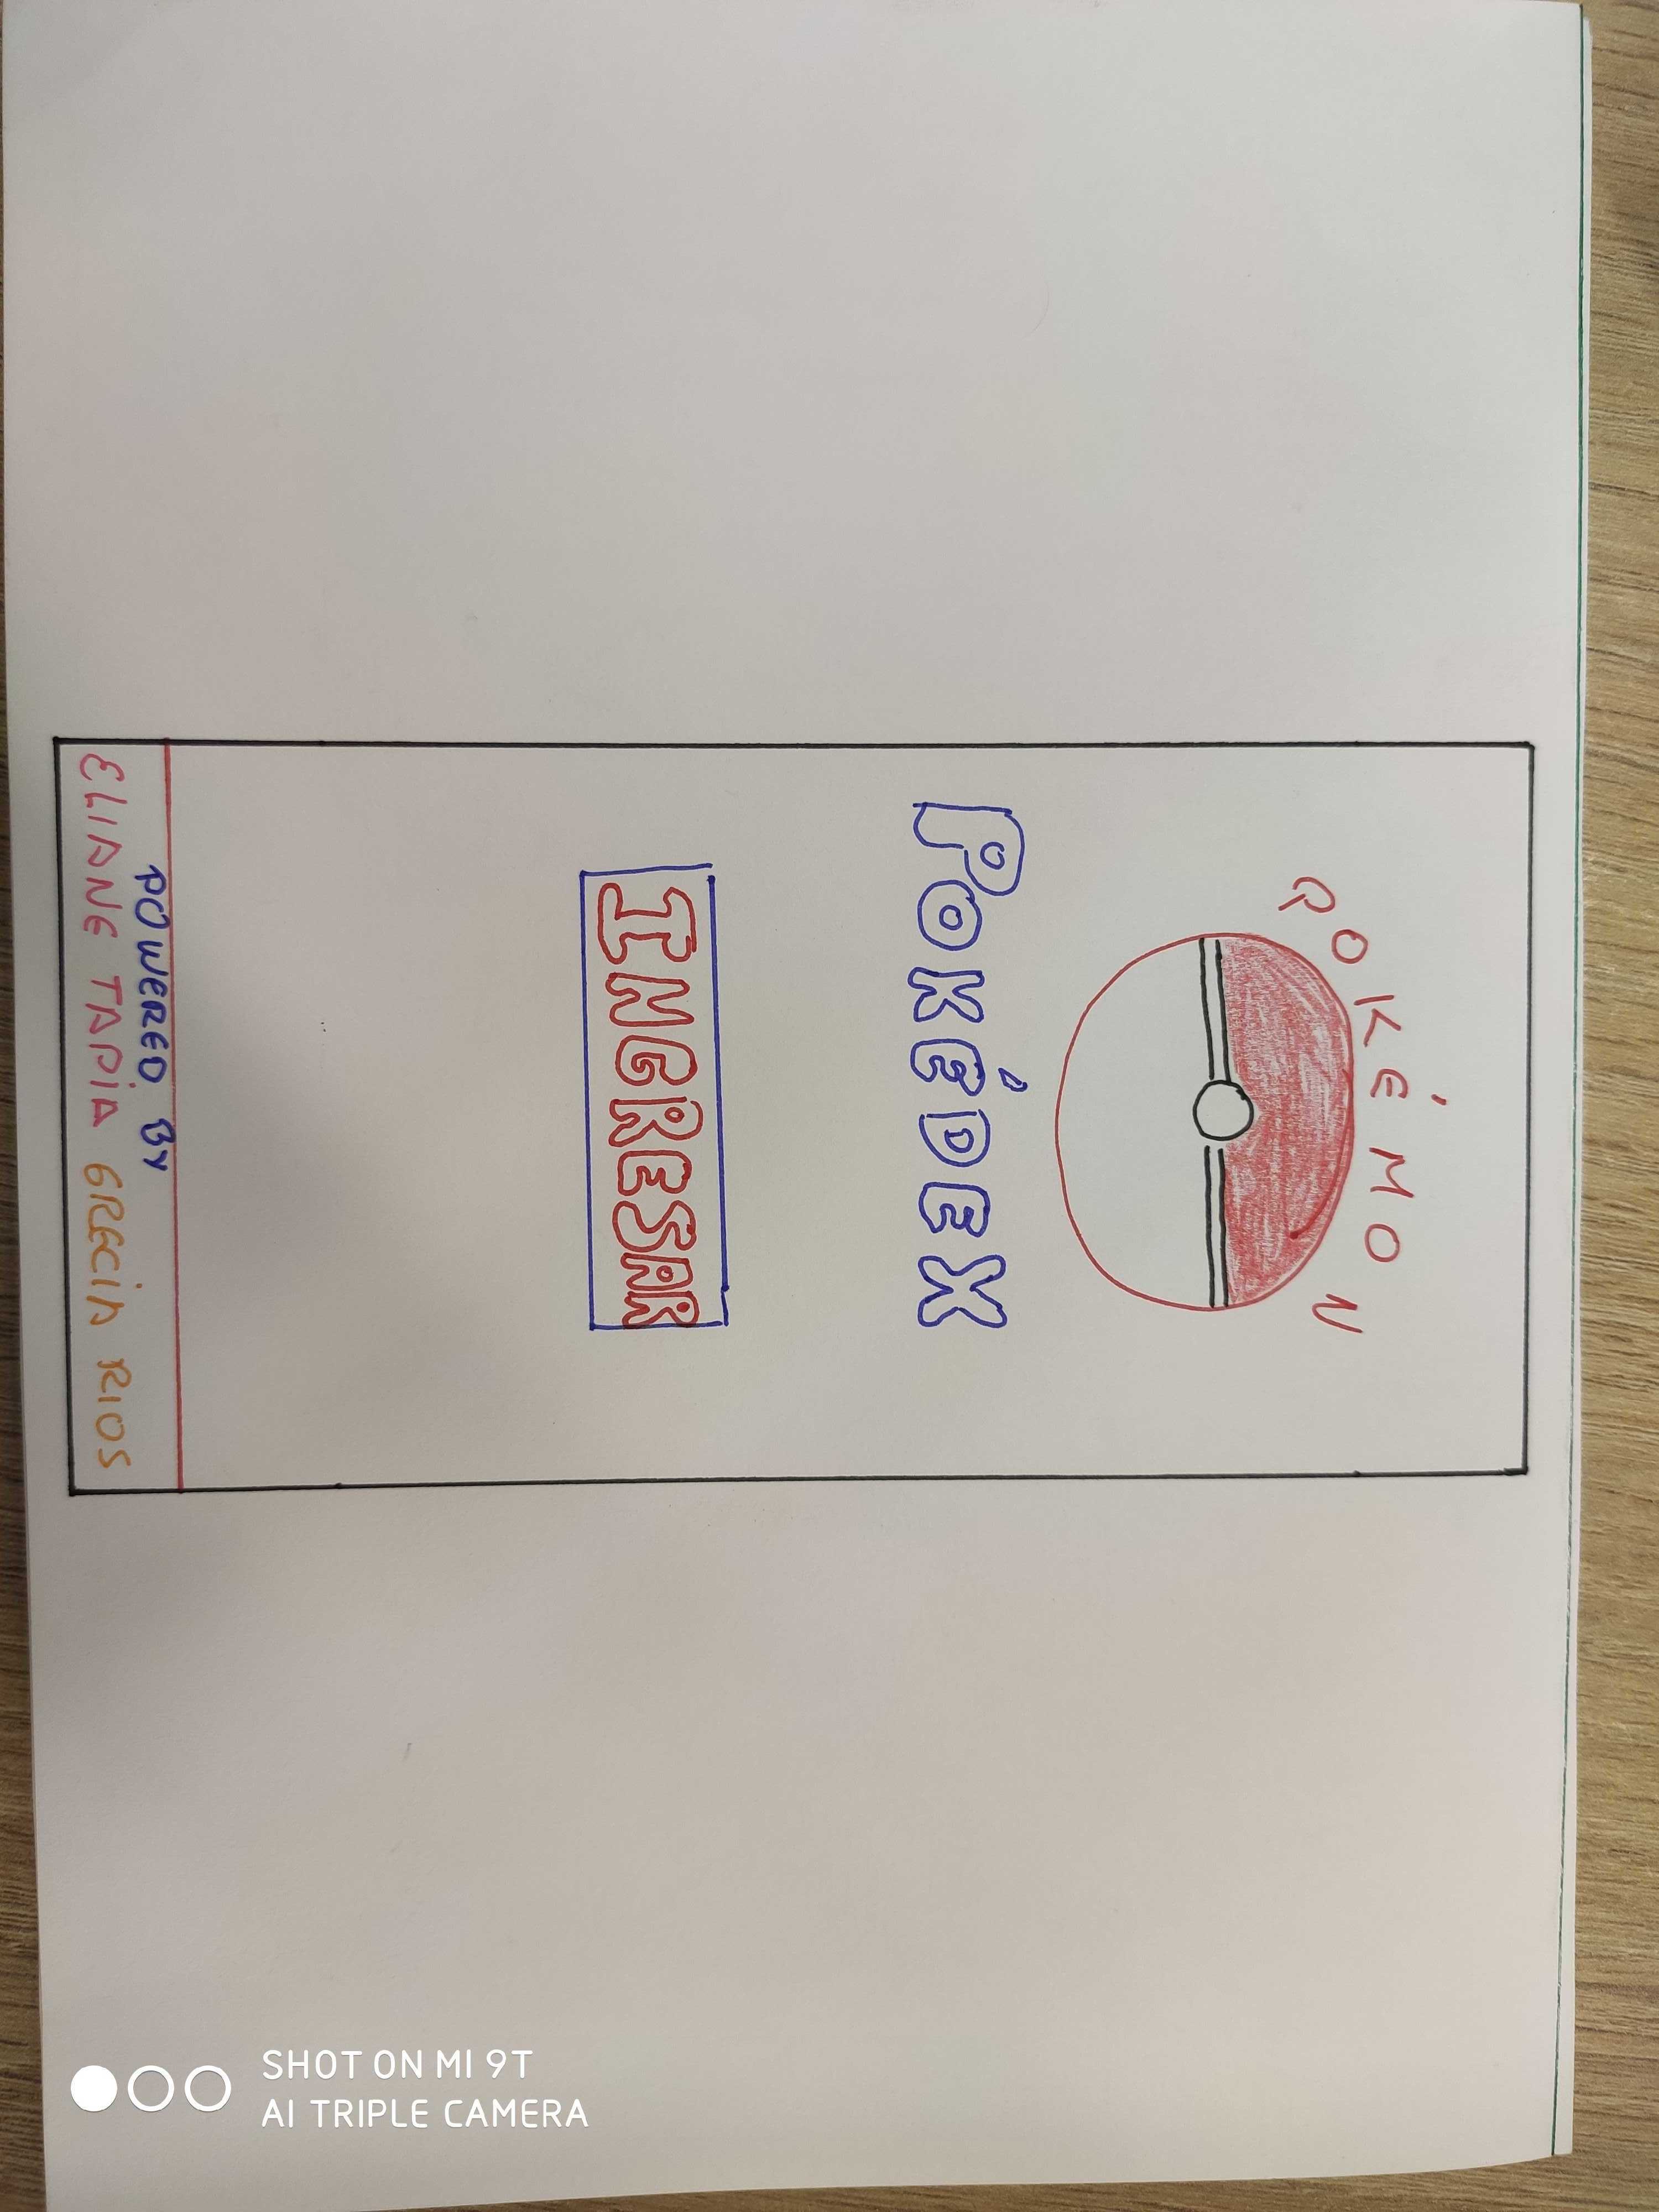 POKÉMON
POKÉDEX
INGRESAR
POWERED BY
ELIANE TAPIA GRECIA RIOS
SHOT ON MI 9T
AI TRIPLE CAMERA